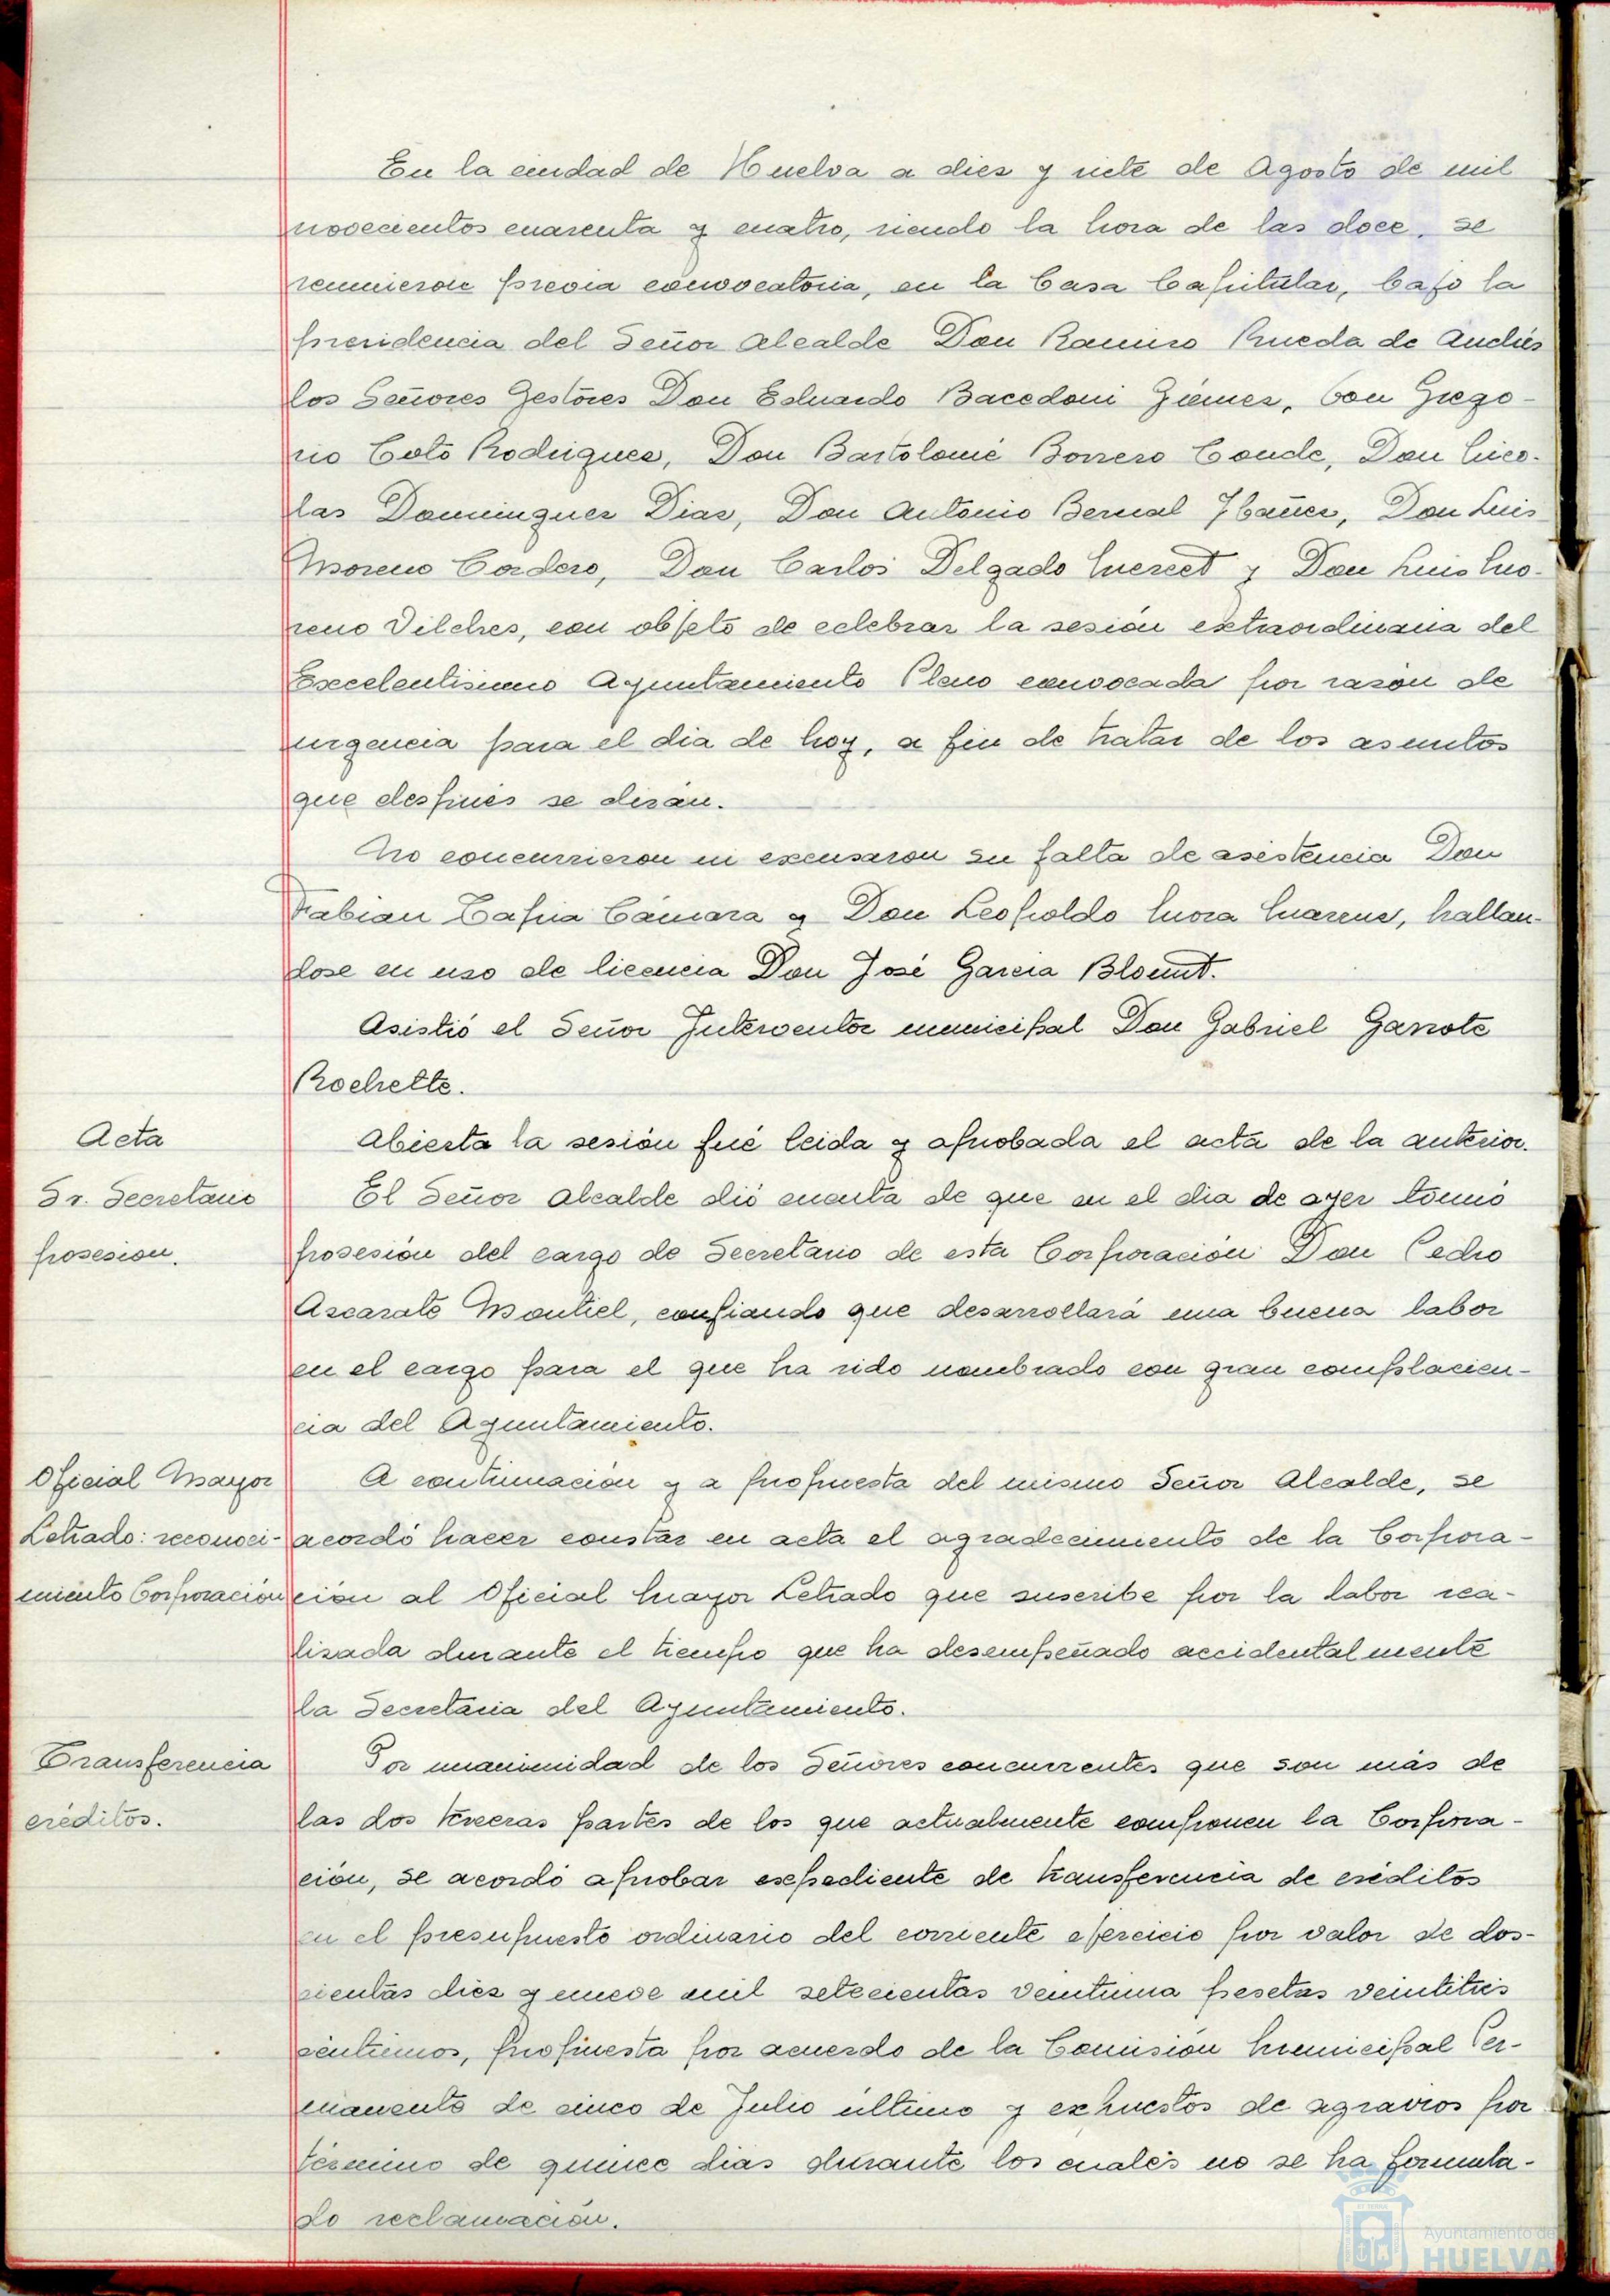 En la ciudad de Huelva a diez y siete de Agosto de mil
novecientos cuarenta y cuatro, siendo la hora de las doce, se
reunieron previa convocatoria, en la Casa Capitular, bajo la
presidencia del Señor Alcalde Don Ramiro Rueda de Andrés
los Señores Gestores Don Eduardo Bacedoni Giémez, Don Grego-
rio Coto Rodriguez, Don Bartolomé Borrero Conde, Don Nico-
las Dominguez Diaz, Don Antonio Bernal Ybañez, Don Luis
Moreno Cordero, Don Carlos Delgado Mercet y Don Luis Mo-
reno Vilches, con objeto de celebrar la sesión extraordinaria del
Excelentisimo Ayuntamiento Pleno convocada por razón de
urgencia para el dia de hoy, a fin de tratar de los asuntos
que después se dirán.
No concurrieron ni excusaron su falta de asistencia Don
Fabian Tapia Cámara y Don Leopoldo Mora hallan-
dose en uso de licencia Don José Garcia Blount.
Asistió el Señor Interventor municipal Don Gabriel Garrote
Rochette.
Acta
Abierta la sesión fué leida y aprobada el acta de la anterior.
Sr. Secretario
posesion.
El Señor Alcalde dió cuenta de que en el dia de ayer tomó
posesión del cargo de Secretario de esta Corporación Don Pedro
Azcarate Montiel, confiando que desarrollará una buena labor
en el cargo para el que ha sido nombrado con gran complacen-
cia del Ayuntamiento.
Oficial Mayor
Letrado: reconoci-
miento Corporación
A continuación y a propuesta del mismo Señor Alcalde, se
acordó hacer constar en acta el agradecimiento de la Corpora-
ción al Oficial Mayor Letrado que suscribe por la labor rea-
lizada durante el tiempo que ha desempeñado accidentalmente
la Secretaria del Ayuntamiento.
Transferencia
créditos.
Por unanimidad de los Señores concurrentes que son más de
las dos terceras partes de los que actualmente componen la Corpora-
ción, se acordó aprobar expediente de transferencia de créditos
en el presupuesto ordinario del corriente ejercicio por valor de dos-
cientas diez y nueve mil setecientas veintiuna pesetas veintitrés
céntimos, propuesta por acuerdo de la Comisión Municipal Per-
manente de cinco de Julio último y expuestos de agravios por
término de quince dias durante los cuales no se ha formula-
do reclamación.
Ayuntamiento de
HUELVA